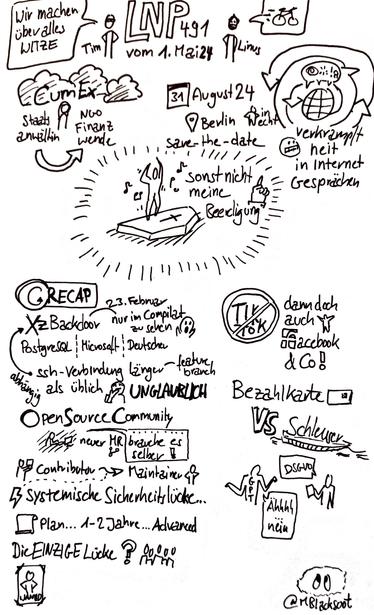 Wir machen
über alles
WITZE
Tim
LNP 491
vom 1. Mai 24
Linus
CumEx
Staats
anwältin
NGO
Finanz
wende
31 August 24
Berlin
save-the-date
verkrampft
heit
in Internet
Gesprächen
sonst nicht
meine
Beerdigung
RECAP
23. Februar
XzBackdoor
nur im Compilat
zu sehen
PostgreSQL | Microsoft | Deutscher
abhängig
ssh-Verbindung länger
feature
branch
als üblich
UNGLAUBLICH
OpenSource Community
neuer MR
brauche es
selber
Contributor
Maintainer
Systemische Sicherheitslücke...
Plan... 1-2 Jahre... Advanced
Die EINZIGE Lücke ?
WANTED
TIK
TOK
dann doch
auch X
Facebook
& Co!
Bezahlkarte
VS Schleuser
DSGVO
Ahhh!
nein
@MBlacksoot